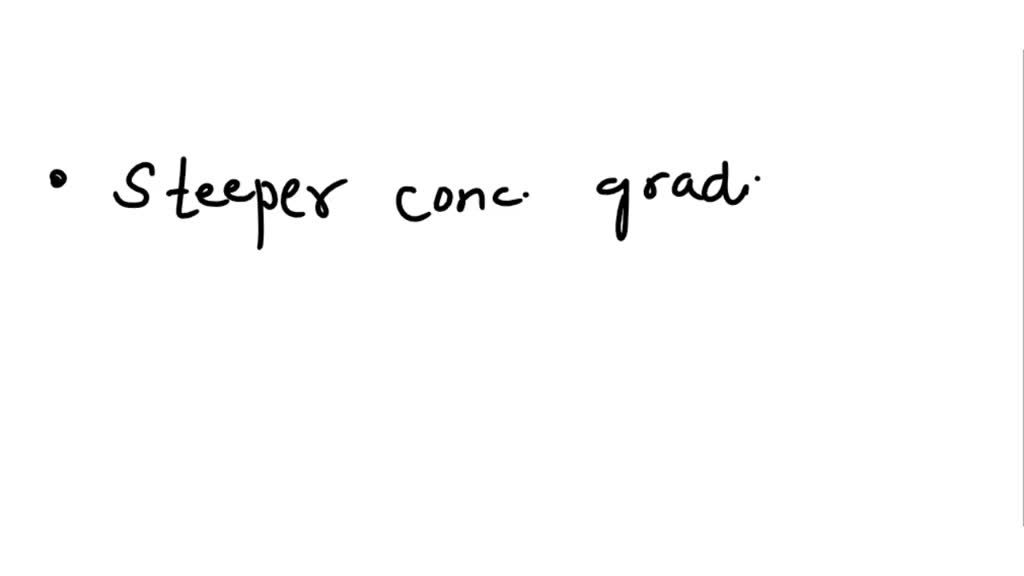 • Steeper conc. grad.